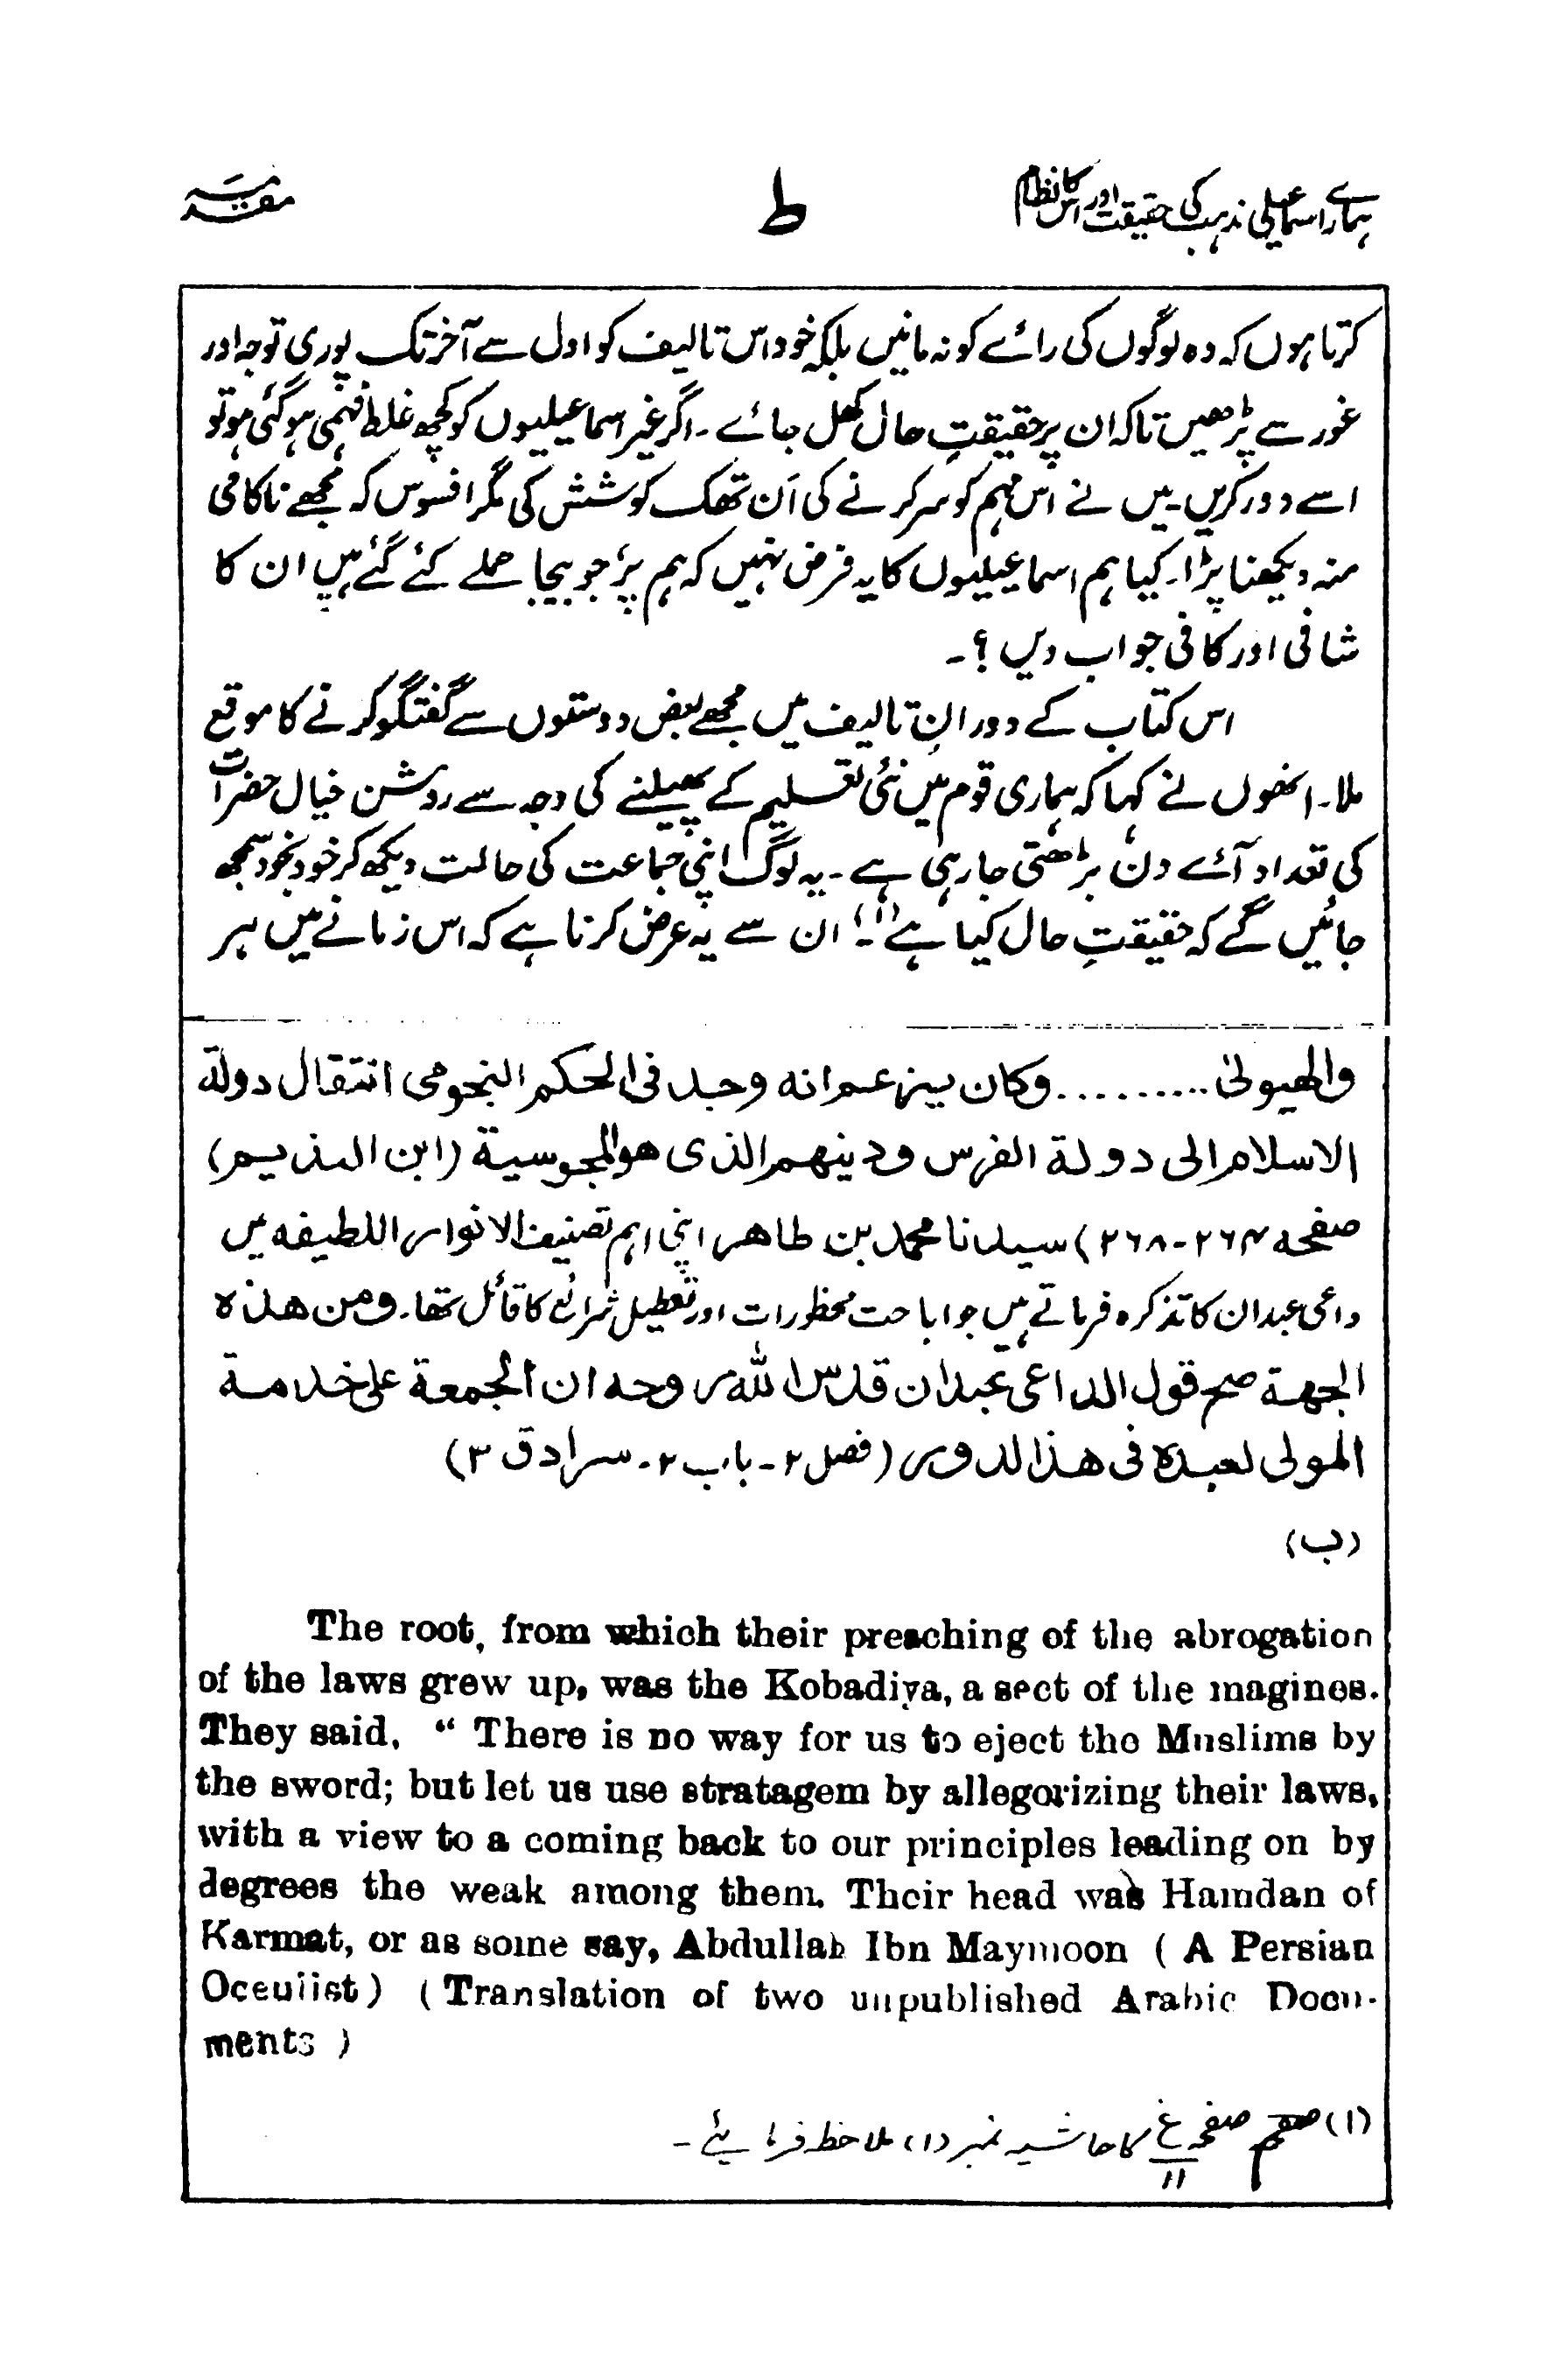 ہمارے اسماعیلی مذہب کی حقیقت اور اس کا نظام
ط
مقدمہ
کرتا ہوں کہ وہ لوگوں کی رائے کو نہ مانیں بلکہ خود اس تالیف کو اول سے آخر تک پوری توجہ اور
غور سے پڑھیں تاکہ ان پر حقیقتِ حال کھل جائے ۔ اگر غیر اسماعیلیوں کو کچھ غلط فہمی ہو گئی ہو تو
اسے دور کریں ۔ میں نے اس مہم کو سر کرنے کی اَن تھک کوشش کی مگر افسوس کہ مجھے ناکامی
منہ دیکھنا پڑا ۔ کیا ہم اسماعیلیوں کا یہ فرض نہیں کہ ہم پر جو بیجا حملے کئے گئے ہیں ان کا
شافی اور کافی جواب دیں ؟ ۔
اس کتاب کے دورانِ تالیف میں مجھے بعض دوستوں سے گفتگو کرنے کا موقع
ملا ۔ انھوں نے کہا کہ ہماری قوم میں نئی تعلیم کے پھیلنے کی وجہ سے روشن خیال حضرات
کی تعداد آئے دن بڑھتی جا رہی ہے ۔ یہ لوگ اپنی جماعت کی حالت دیکھ کر خود بخود سمجھ
جائیں گے کہ حقیقتِ حال کیا ہے (۱) ۔ ان سے یہ عرض کرنا ہے کہ اس زمانے میں ہر
والھیولیٰ .......... وکان یزعم انه وجد فی الحکم النجومی انتقال دولة
الاسلام الی دولة الفرس ودینهم الذی هو المجوسیة (ابن الندیم)
صفحه ۲۶۴-۲۶۸) سیدنا محمد بن طاهر اپنی اہم تصنیف الانوار اللطیفه میں
داعی عبدان کا تذکرہ فرماتے ہیں جو اباحت محظورات اور تعطیل شرائع کا قائل تھا ۔ ومن هذه
الجهة صح قول الداعی عبدان قدس الله روحه ان الجمعة علی خدمة
المولی لعبده فی هذا الدور (فصل ۲ - باب ۲ - سرادق ۳)
(ب)
The root, from which their preaching of the abrogation
of the laws grew up, was the Kobadiya, a sect of the magines.
They said, “ There is no way for us to eject the Muslims by
the sword; but let us use stratagem by allegorizing their laws,
with a view to a coming back to our principles leading on by
degrees the weak among them. Their head was Hamdan of
Karmat, or as some say, Abdullah Ibn Maymoon ( A Persian
Oceulist ) ( Translation of two unpublished Arabic Docu-
ments )
(۱) صفحہ غ/۱۱ کا حاشیہ نمبر (۱) ملاحظہ فرمائیے ۔